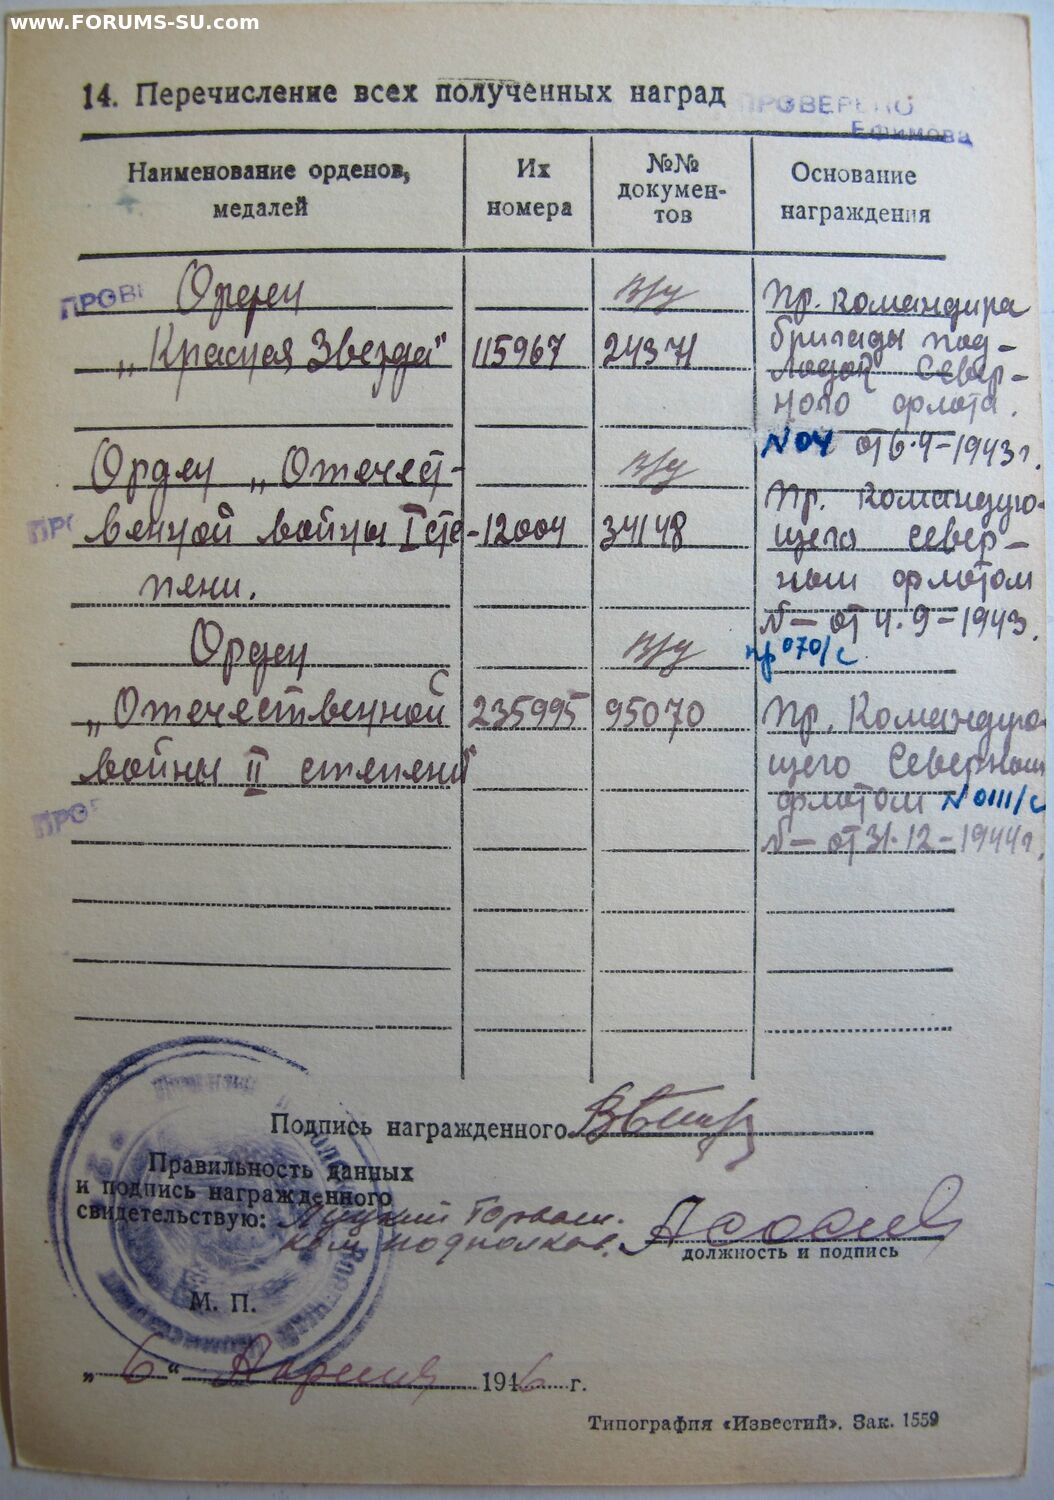 www.FORUMS-SU.com
14. Перечисление всех полученных наград
ПРОВЕРЕНО
Ефимова
Наименование орденов, медалей
Их номера
№№ докумен-
тов
Основание награждения
ПРОВЕ
Орден
в/у
Пр. Командира
„Красная Звезда"
115967
24371
бригады под-
лодок Север-
ного флота.
N 04 от 6.4-1943г.
Орден „Отечест-
в/у
венной войны I сте-
12004
34148
пени.
Пр. Командую-
щего Север-
ным флотом
N— от 4.9-1943.
пр 070/с
ПР
Орден
в/у
„Отечественной
235995
95070
войны II степени"
Пр. Командую-
щего Северным
флотом N 0111/с
N— от 31.12-1944г.
ПРОВ
Подпись награжденного
Правильность данных
и подпись награжденного
свидетельствую: Луцкий Горвоен.
ком подполков.
должность и подпись
М. П.
„ 6 " Апреля 1946 г.
Типография «Известий». Зак. 1559